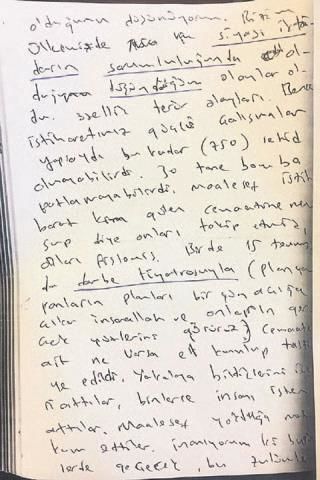 olduğunu düşünüyorum. Bizim
ülkemizde siyasi ikti-
darın sorumluluğunda ol-
duğunu düşündüğüm olaylar ol-
du. özellikle terör olayları. Bence
istihbaratımız güçlü çalışmalar
yapsaydı bu kadar (750) şehid
olmayabilirdi. 30 tane bomba
patlamayabilirdi. maalesef istih
barat kim gülen cemaatine men
sup diye onları takip etmiş,
onları fişlemiş. Birde 15 temmuz
da darbe tiyatrosuyla (planya
panların planları bir gün açığa
çıkar inşaallah ve onların ger
çek yüzlerini görürüz) Cemaate
ait ne varsa el konulup tasfi
ye edildi. Yakalaya bildiklerini içe
ri attılar, binlerce insanı işten
attılar. Maalesef mah
kum ettiler. inanıyorum ki bu
lerde geçecek, bu zulümle